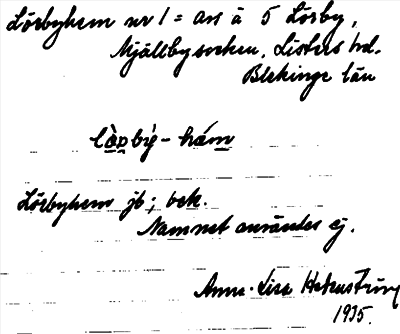 Lörbyhem nr 1 = avs å 5 Lörby,
Mjällby socken, Listers hd.
Blekinge län
Lörbyhem jb; bek.
Namnet användes ej.
Anna-Lisa
1935.